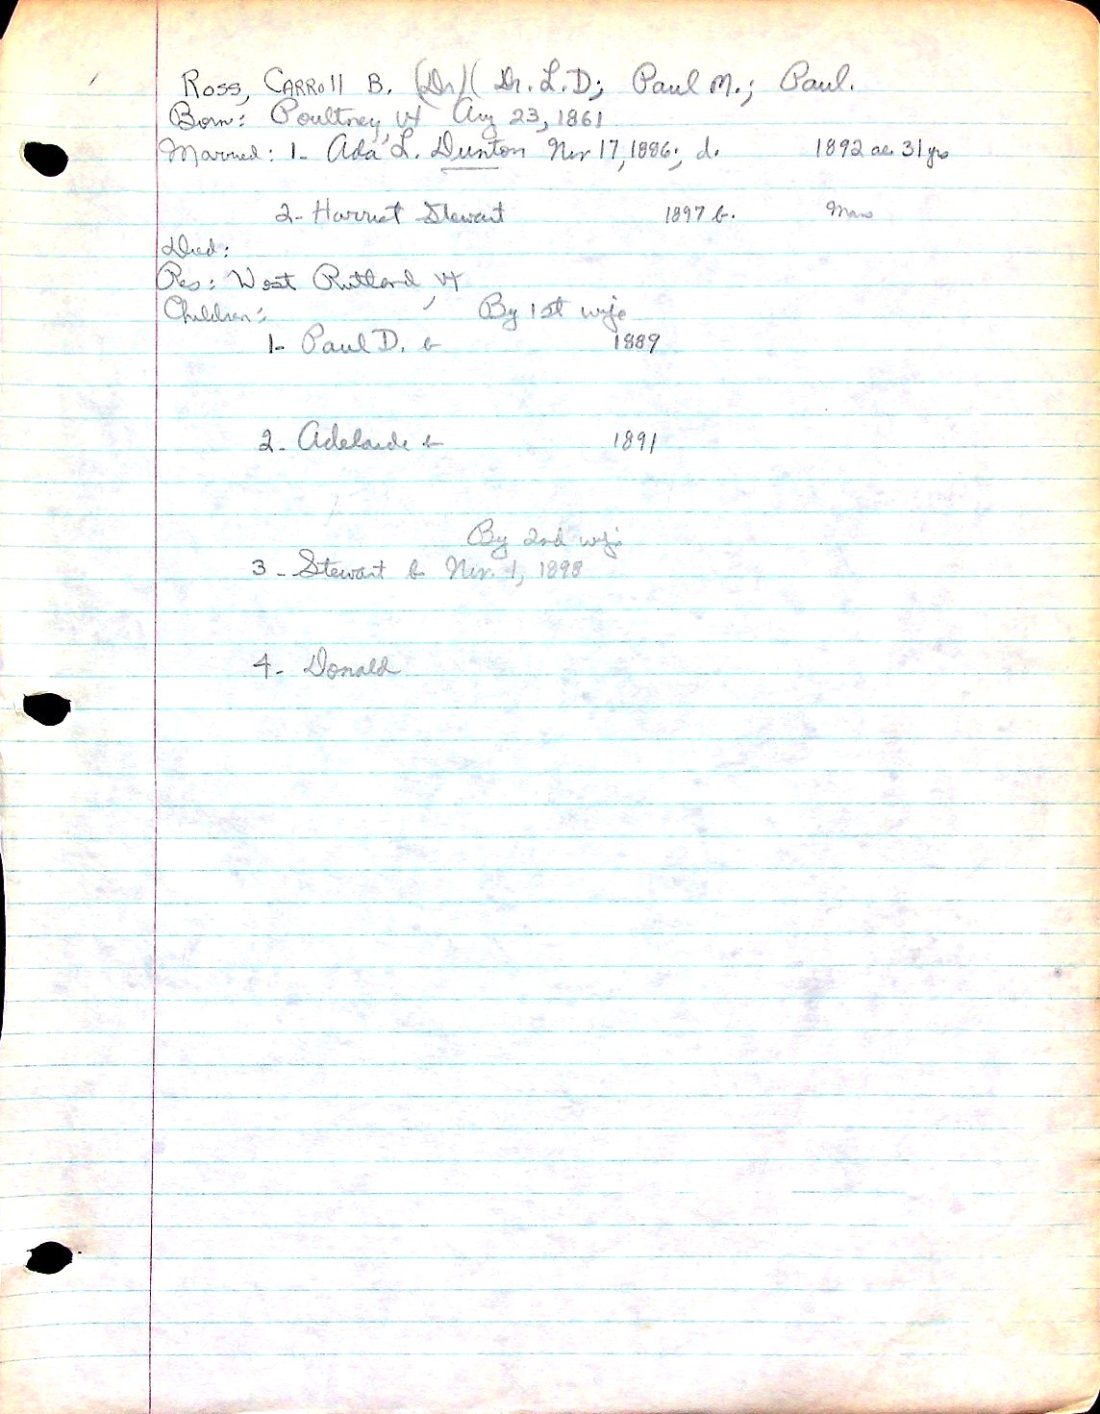 Ross, CARRoll B. (Dr) ( Dr. L.D; Paul M.; Paul.
Born: Poultney, Vt Aug 23, 1861
Married: 1- Ada L. Dunton Nov 17, 1886; d. 1892 ae. 31 yrs
2- Harriet Stewart 1897 b. Mass
Died:
Res: West Rutland, Vt
Children: By 1st wife
1- Paul D. b 1889
2- Adelaide b 1891
By 2nd wife
3- Stewart b Nov. 1, 1898
4- Donald